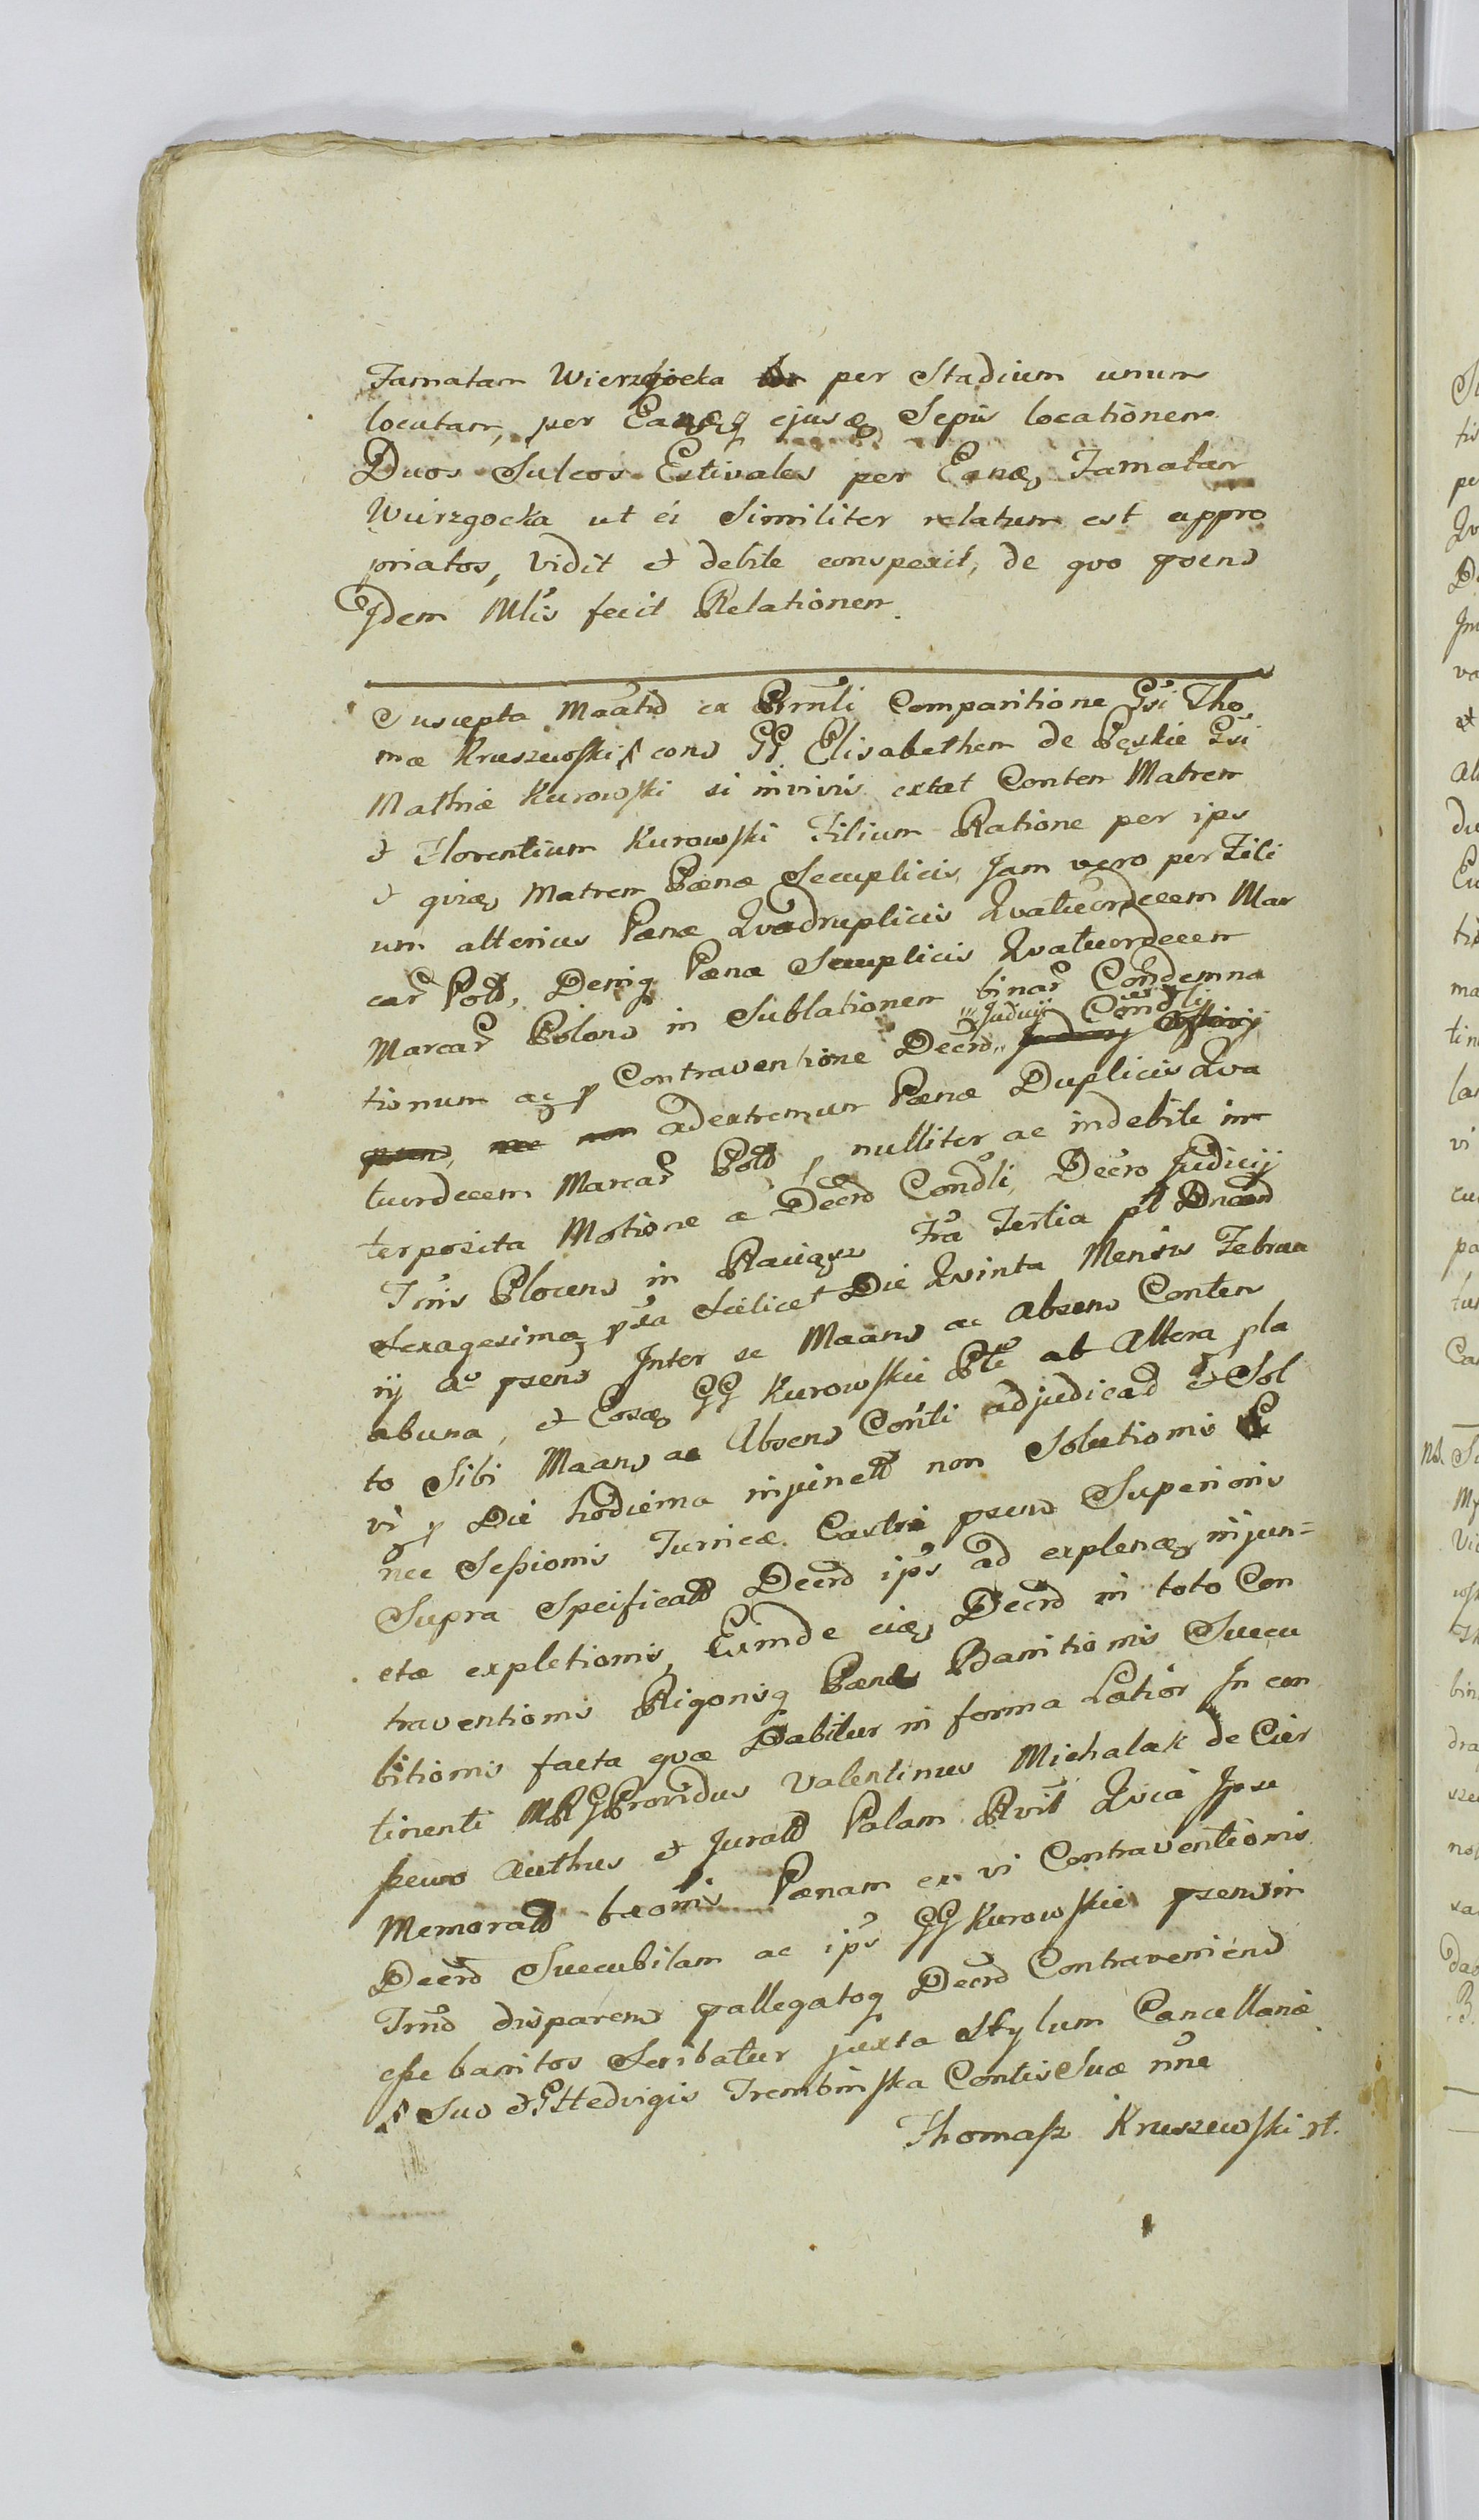 Famatam Wierzgocka per Stadium unum
locutam, per ejusq Sepis locationem
Duos Sulcos Estivales per Eanq Famatam
Wierzgocka ut ei Similiter relatum est appro
priatos, vidit et debite conspexit, de quo psens
Idem Mlis fecit Relationem.
Suscepta Maatio ex Prmli Comparitione Gsi Tho
mæ Kruszewski cons GG Elisabetham de Pęskie Gsi
Mathiæ Kurowski si in vivis extat Conten Matrem
et Florentium Kurowski Filium Ratione per ips
et quiæ Matrem Pænæ Secuplicis, Jam vero per Fili
um alterius Pænæ Quadruplicis Quatuordecem Mar
car Poll, Deniq Pænæ Secuplicis Quatuordecem
Marcar Polons in Sublationem binar Condemna
tionum ac p Contraventione Decro Judicij Condli
adextremum Pænæ Duplicis Qua
tuordecem Marcar Poll, nulliter ac indebite in
terposita Motione a Decro Condli, Decro Judicij
Trnis Plocens in Raciąsz Fra Tertia pt Dncam
Sexagesimæ pxa Scilicet Die Quinta Mensis Februa
rij Ao psens Inter se Maans ac Absens Conten
ab una, et Eosq GG Kurowskie Pte ab Altera pla
to Sibi Maans ac Absens Conti adjudicad et Sol
vi p Die hodierna injunctt non Solutionis
nec Seßionis Turricæ Castri psens Superioris
Supra Specificatt Decro ips ad explenq injun=
ctæ expletionis, Exinde eiq Decro in toto Con
traventionis Rigorisq Pænæ Bannitionis Succu
bitionis facta quæ Dabitur in forma Latior In con
tinenti Providus Valentinus Michalak de Cier
pewo Authus et Juratt Palam Rvit Quia Ipse
Memoratt bxonis Pænam ex vi Contraventionis
Decro Succubitam ac ips GG Kurowskie psens in
Trmo disparens pallegatoq Decro Contraveniens
eße banitos Scribatur juxta Stylum Cancellariæ
Suo et G Hedvigis Trembinska Contis Suæ nne
Thomaß Kruszewski rt.